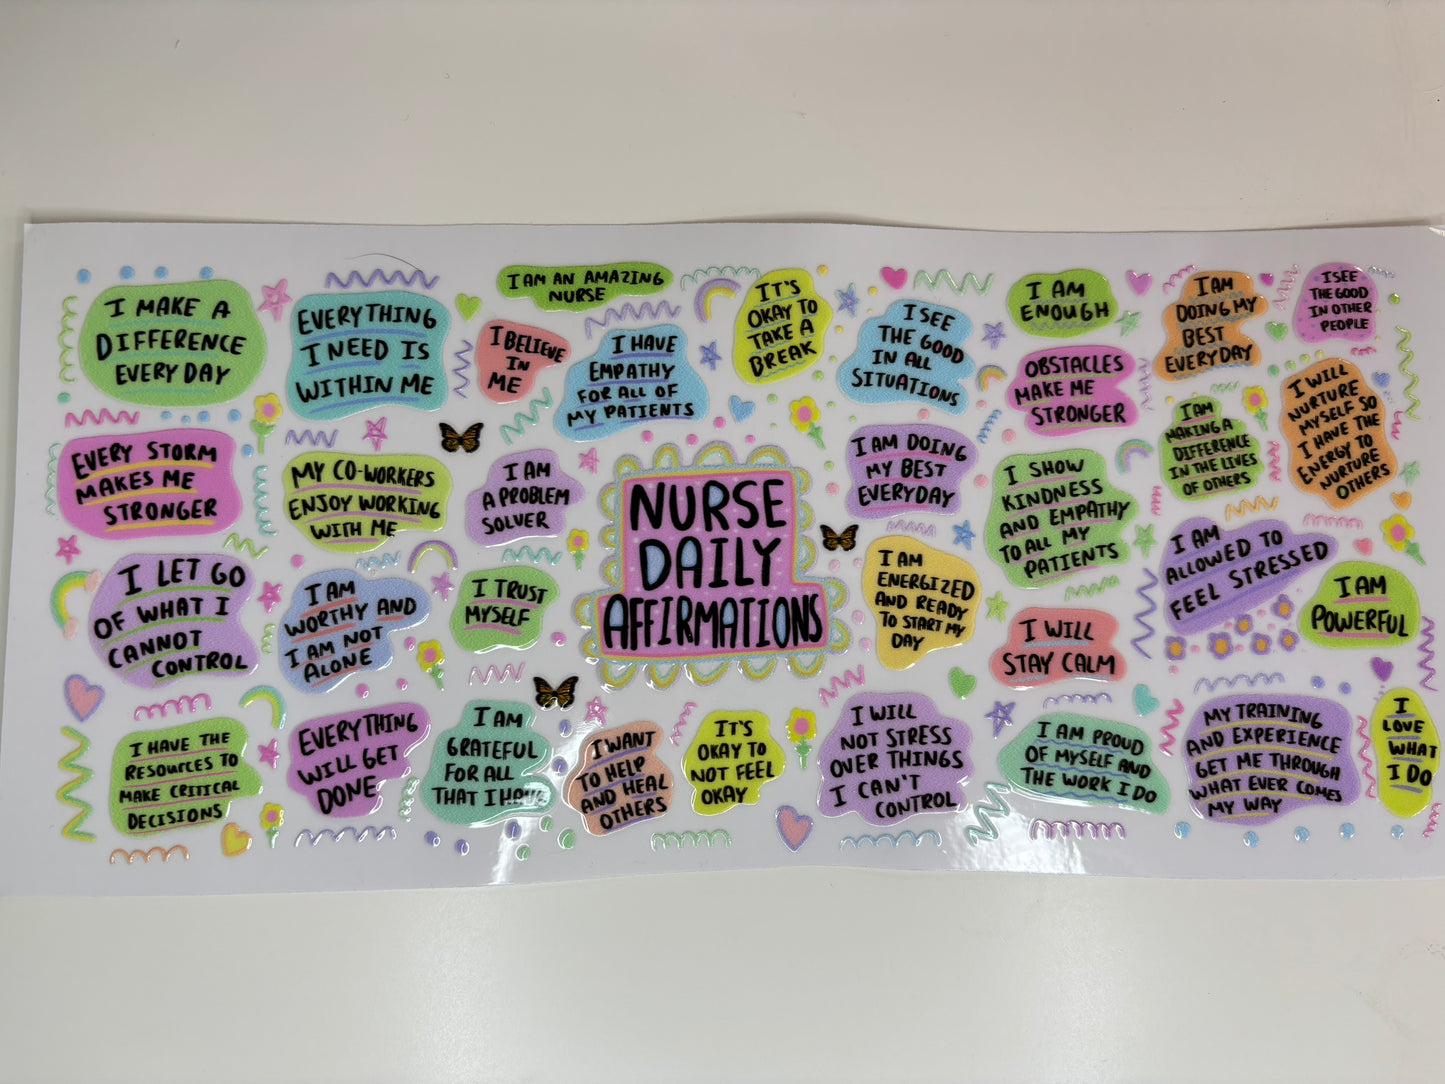 I MAKE A
DIFFERENCE
EVERY DAY
EVERYTHING
I NEED IS
WITHIN ME
I AM AN AMAZING
NURSE
I BELIEVE
IN
ME
I HAVE
EMPATHY
FOR ALL OF
MY PATIENTS
IT'S
OKAY TO
TAKE A
BREAK
I SEE
THE GOOD
IN ALL
SITUATIONS
I AM
ENOUGH
I AM
DOING MY
BEST
EVERYDAY
I SEE
THE GOOD
IN OTHER
PEOPLE
OBSTACLES
MAKE ME
STRONGER
I WILL
NURTURE
MYSELF SO
I HAVE THE
ENERGY TO
NURTURE
OTHERS
I AM
MAKING A
DIFFERENCE
IN THE LIVES
OF OTHERS
EVERY STORM
MAKES ME
STRONGER
MY CO-WORKERS
ENJOY WORKING
WITH ME
I AM
A PROBLEM
SOLVER
NURSE
DAILY
AFFIRMATIONS
I AM DOING
MY BEST
EVERYDAY
I SHOW
KINDNESS
AND EMPATHY
TO ALL MY
PATIENTS
I AM
ALLOWED TO
FEEL STRESSED
I LET GO
OF WHAT I
CANNOT
CONTROL
I AM
WORTHY AND
I AM NOT
ALONE
I TRUST
MYSELF
I AM
ENERGIZED
AND READY
TO START MY
DAY
I WILL
STAY CALM
I AM
POWERFUL
I HAVE THE
RESOURCES TO
MAKE CRITICAL
DECISIONS
EVERYTHING
WILL GET
DONE
I AM
GRATEFUL
FOR ALL
THAT I HAVE
I WANT
TO HELP
AND HEAL
OTHERS
IT'S
OKAY TO
NOT FEEL
OKAY
I WILL
NOT STRESS
OVER THINGS
I CAN'T
CONTROL
I AM PROUD
OF MYSELF AND
THE WORK I DO
MY TRAINING
AND EXPERIENCE
GET ME THROUGH
WHAT EVER COMES
MY WAY
I
LOVE
WHAT
I DO